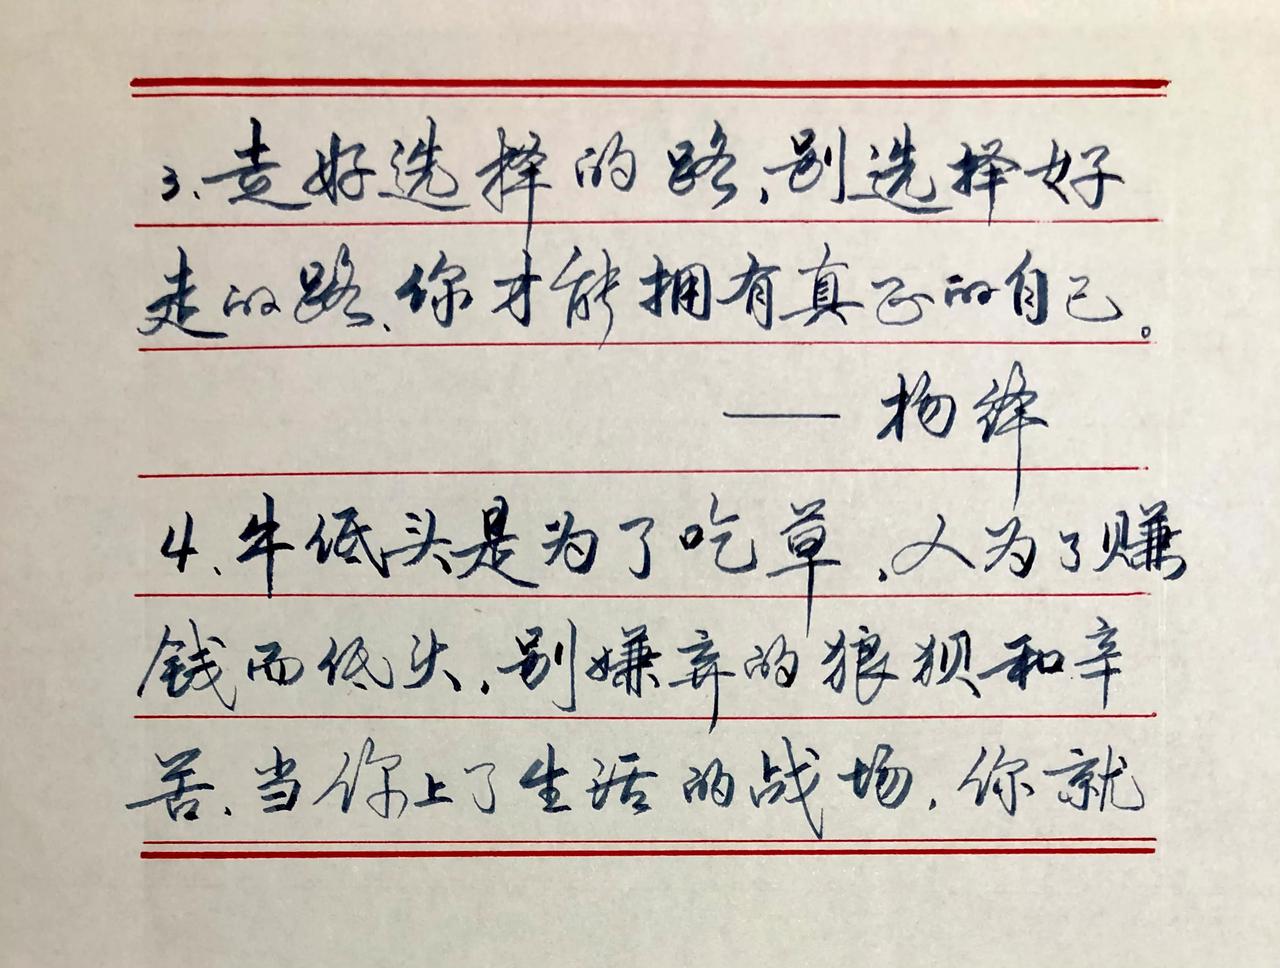 3、走好选择的路，别选择好
走的路，你才能拥有真正的自己。
——杨绛
4、牛低头是为了吃草，人为了赚
钱而低头，别嫌弃的狼狈和辛
苦，当你上了生活的战场，你就